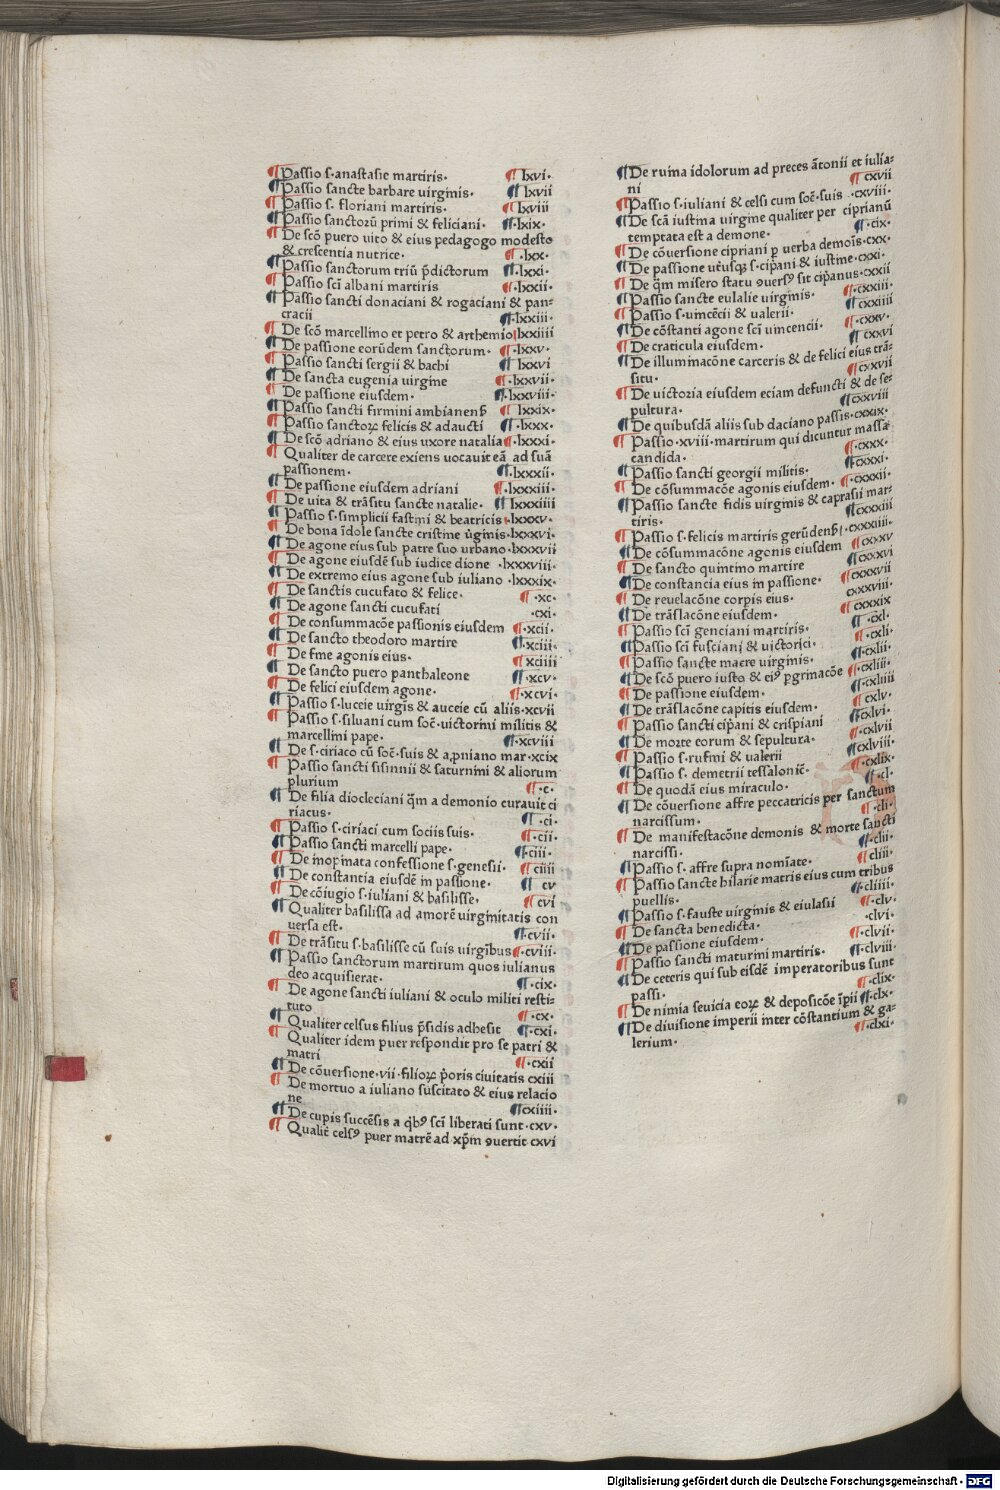 ¶Passio s·anastasie martiris· ¶ lxvi·
¶Passio sancte barbare uirginis· ¶ lxvii
¶Passio s· floriani martiris· ¶ lxviii
¶Passio sanctoꝝ primi & feliciani· ¶·lxix·
¶De scō puero uito & eius pedagogo modesto
& crescentia nutrice· ¶·lxx·
¶Passio sanctorum triū p̄dictorum ¶·lxxi·
¶Passio scī albani martiris ¶·lxxii·
¶Passio sancti donaciani & rogaciani & pan-
cracii ¶·lxxiii·
¶De scō marcellino et petro & arthemio¶lxxiiii
¶De passione eorūdem sanctorum· ¶·lxxv·
¶Passio sancti sergii & bachi ¶ lxxvi
¶De sancta eugenia uirgine ¶·lxxvii·
¶De passione eiusdem· ¶·lxxviii·
¶Passio sancti firmini ambianenẞ ¶ lxxix·
¶Passio sanctoꝝ felicis & adaucti ¶·lxxx·
¶De scō adriano & eius uxore natalia¶·lxxxi·
¶Qualiter de carcere exiens uocauit eā ad suā
passionem· ¶·lxxxii·
¶De passione eiusdem adriani ¶·lxxxiii·
¶De uita & trāsitu sancte natalie· ¶ lxxxiiii
¶Passio s·simplicii fastini & beatricis·lxxxv·
¶De bona īdole sancte cristine u̇ginis·lxxxvi·
¶De agone eius sub patre suo urbano·lxxxvii
¶De agone eiusdē sub iudice dione ·lxxxviii·
¶De extremo eius agone sub iuliano ·lxxxix·
¶De sanctis cucufato & felice· ¶ ·xc·
¶De agone sancti cucufati ·cxi·
¶De consummacōe passionis eiusdem ¶·xcii·
¶De sancto theodoro martire ¶·xciii·
¶De fine agonis eius· ¶ xciiii
¶De sancto puero panthaleone ¶·xcv·
¶De felici eiusdem agone· ¶·xcvi·
¶Passio s·luceie uirgīs & auceie cū aliis·xcvii
¶Passio s·siluani cum soc̄·uictorini militis &
marcellini pape· ¶·xcviii
¶De s·ciriaco cū soc̄·suis & aꝓniano mar·xcix
¶Passio sancti sisinnii & saturnini & aliorum
plurium ¶·c·
¶De filia diocleciani q̄m a demonio curauit ci
riacus· ¶ ·ci·
¶Passio s·ciriaci cum sociis suis· ¶·cii·
¶Passio sancti marcelli pape· ¶·ciii·
¶De inopinata confessione s·genesii· ¶ ciiii
¶De constantia eiusdē in passione· ¶ cv
¶De cōiugio s·iuliani & basilisse· ¶ cvi
¶Qualiter basilissa ad amorē uirginitatis con
uersa est· ¶·cvii·
¶De trāsitu s·basilisse cū suis uirgībus¶·cviii·
¶Passio sanctorum martirum quos iulianus
deo acquisierat· ¶·cix·
¶De agone sancti iuliani & oculo militi resti-
tuto ¶·cx·
¶Qualiter celsus filius p̄sidis adhesit ¶·cxi·
¶Qualiter idem puer respondit pro se patri &
matri ¶·cxii
¶De cōuersione·vii·filioꝝ p̄oris ciuitatis cxiii
¶De mortuo a iuliano suscitato & eius relacio
ne ¶cxiiii·
¶De cupis succēsis a q̇bꝰ scī liberati sunt·cxv·
¶Qualit̄ celsꝰ puer matrē ad xp̄m ꝯuertit cxvi
¶De ruina idolorum ad preces ātonii et iulia-
ni ¶ cxvii
¶Passio s·iuliani & celsi cum soc̄·suis ·cxviii·
¶De scā iustina uirgine qualiter per ciprianū
temptata est a demone· ¶·cix·
¶De cōuersione cipriani ꝑ uerba demoīs·cxx·
¶De passione utusqꝫ s·cip̄ani & iustine·cxxi·
¶De q̄m misero statu ꝯuersꝰ sit cip̄anus·cxxii
¶Passio sancte eulalie uirginis· ¶·cxxiii·
¶Passio s·uincēcii & ualerii· ¶ cxxiiii
¶De cōstanti agone scī uincencii· ¶·cxxv·
¶De craticula eiusdem· ¶ cxxvi
¶De illuminacōne carceris & de felici eius trā-
situ· ¶ cxxvii
¶De uictoria eiusdem eciam defuncti & de se-
pultura· ¶cxxviii
¶De quibusdā aliis sub daciano passis·cxxix·
¶Passio·xviii·martirum qui dicuntur massa
candida· ¶·cxxx·
¶Passio sancti georgii militis· ¶·cxxxi·
¶De cōsummacōe agonis eiusdem· ¶·cxxxii·
¶Passio sancte fidis uirginis & caprasii mar-
tiris· ¶cxxxiii
¶Passio s·felicis martiris gerūdenẞ¶·cxxxiiii·
¶De cōsummacōne agonis eiusdem ¶cxxxv
¶De sancto quintino martire ¶cxxxvi
¶De constancia eius in passione· ¶cxxxvii
¶De reuelacōne corpis eius· cxxxviii·
¶De trāslacōne eiusdem· ¶ cxxxix
¶Passio scī genciani martiris· ¶ ·cxl·
¶Passio scī fusciani & uictorici· ¶·cxli·
¶Passio sancte macre uirginis· ¶·cxlii·
¶De scō puero iusto & eiꝰ pgrinacōe ¶·cxliii·
¶De passione eiusdem· ¶·cxliiii
¶De trāslacōne capitis eiusdem· ¶·cxlv·
¶Passio sancti cip̄ani & crispiani ¶cxlvi·
¶De morte eorum & sepultura· ¶·cxlvii
¶Passio s·rufini & ualerii ¶cxlviii·
¶Passio s· demetrii tessalonic̄· ¶·cxlix·
¶De quodā eius miraculo· ¶·cl·
¶De cōuersione affre peccatricis per sanctum
narcissum· ¶·cli·
¶De manifestacōne demonis & morte sancti
narcissi· ¶·clii·
¶Passio s· affre supra nomīate· ¶cliii·
¶Passio sancte hilarie matris eius cum tribus
puellis· ¶·cliiii·
¶Passio s·fauste uirginis & eiulasii ¶·clv·
¶De sancta benedicta· ·clvi·
¶De passione eiusdem· ¶·clvii·
¶Passio sancti maturini martiris· ¶·clviii·
¶De ceteris qui sub eisdē imperatoribus sunt
passi· ¶·clix·
¶De nimia seuicia eoꝝ & deposicōe īpii ¶·clx·
¶De diuisione imperii inter cōstantium & ga-
lerium· ¶·clxi·
Digitalisierung gefördert durch die Deutsche Forschungsgemeinschaft - DFG